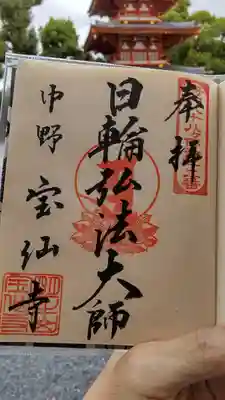 奉拝
日輪弘法大師
中野
宝仙寺